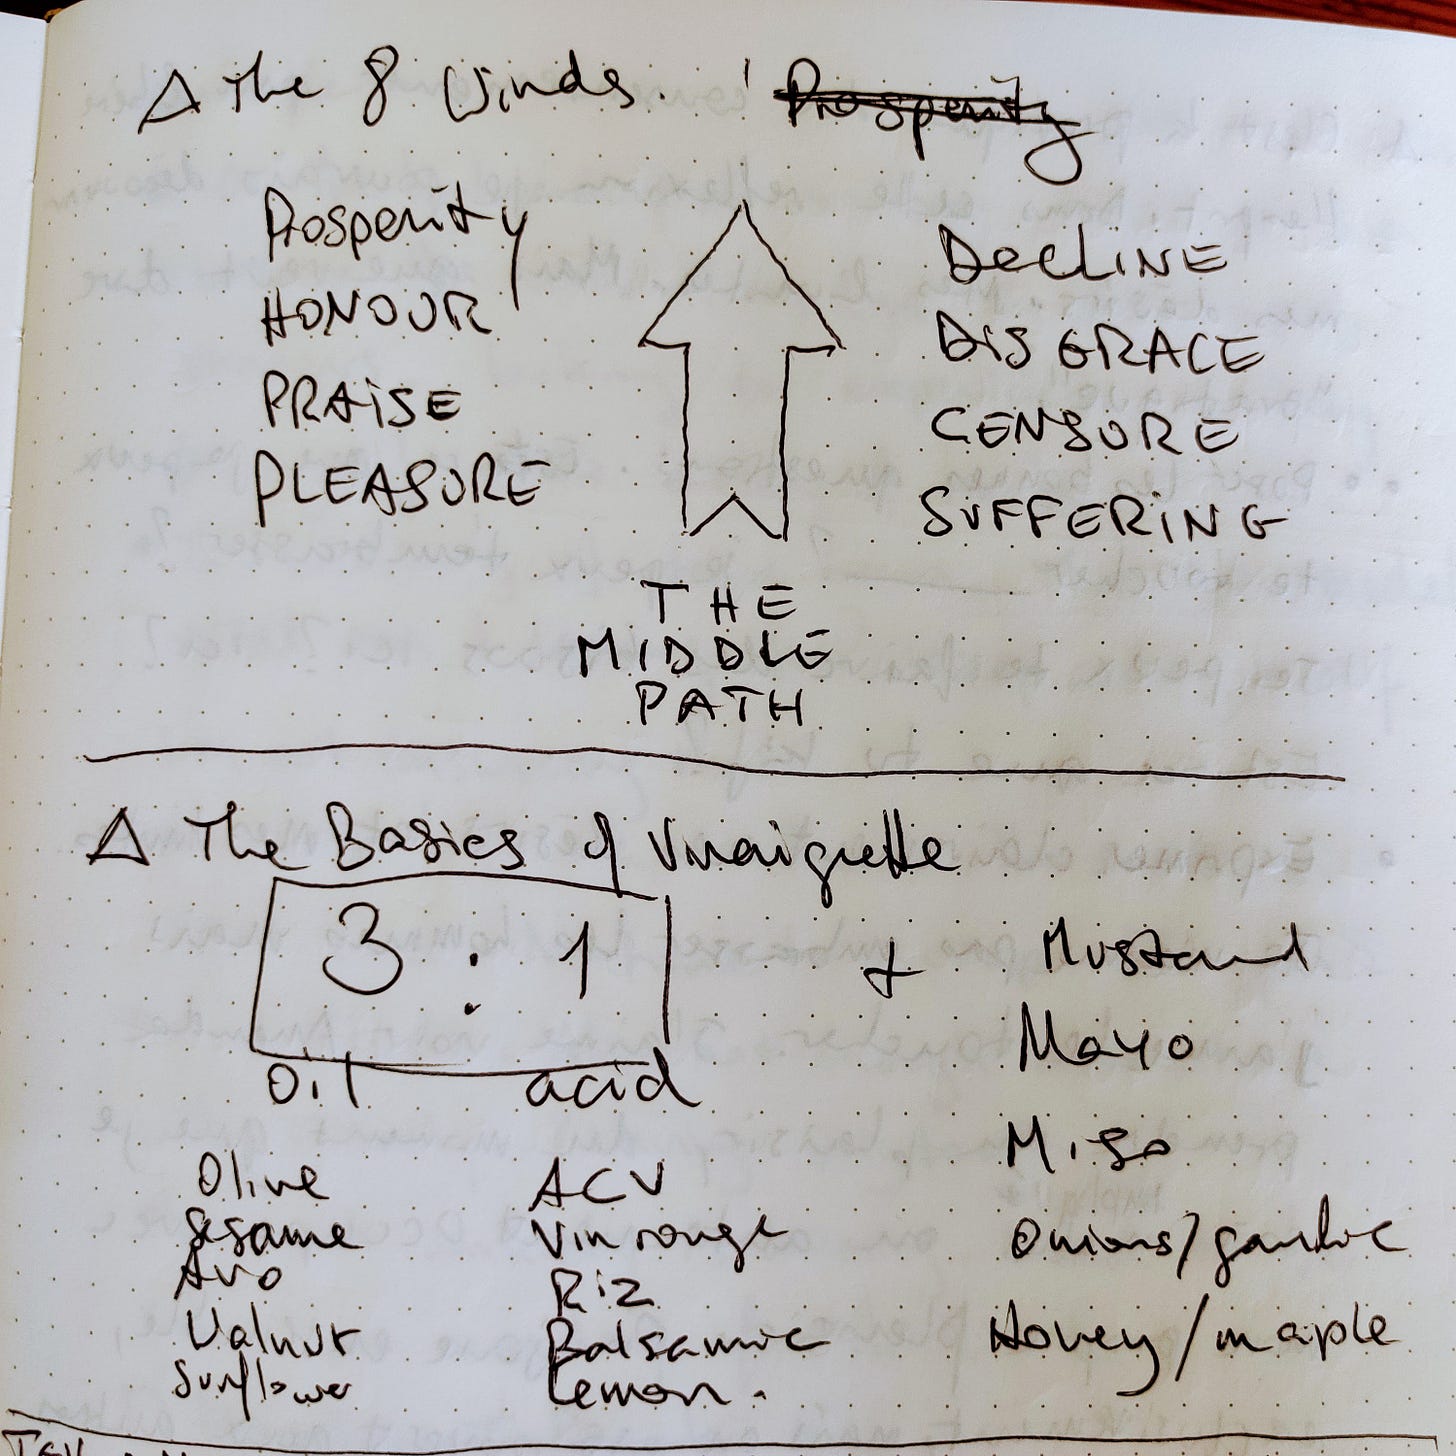 △ The 8 Winds. Prosperity
Prosperity
HONOUR
PRAiSE
PLEASURE
DECLiNE
DiSGRACE
CENSURE
SUFFERiNG
THE
MIDDLE
PATH
△ The Basics of Vinaigrette
3 : 1
oil acid
+ Mustard
Mayo
Miso
Onions/garlic
Honey/maple
Olive
Sesame
Avo
Walnut
Sunflower
ACV
Vin rouge
Riz
Balsamic
Lemon.